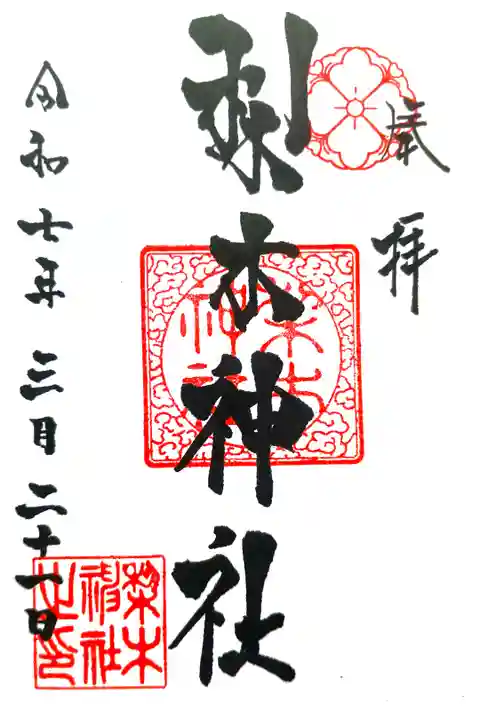 奉拝
梨木神社
令和七年三月二十一日
梨木
神社
梨木
神社
之印